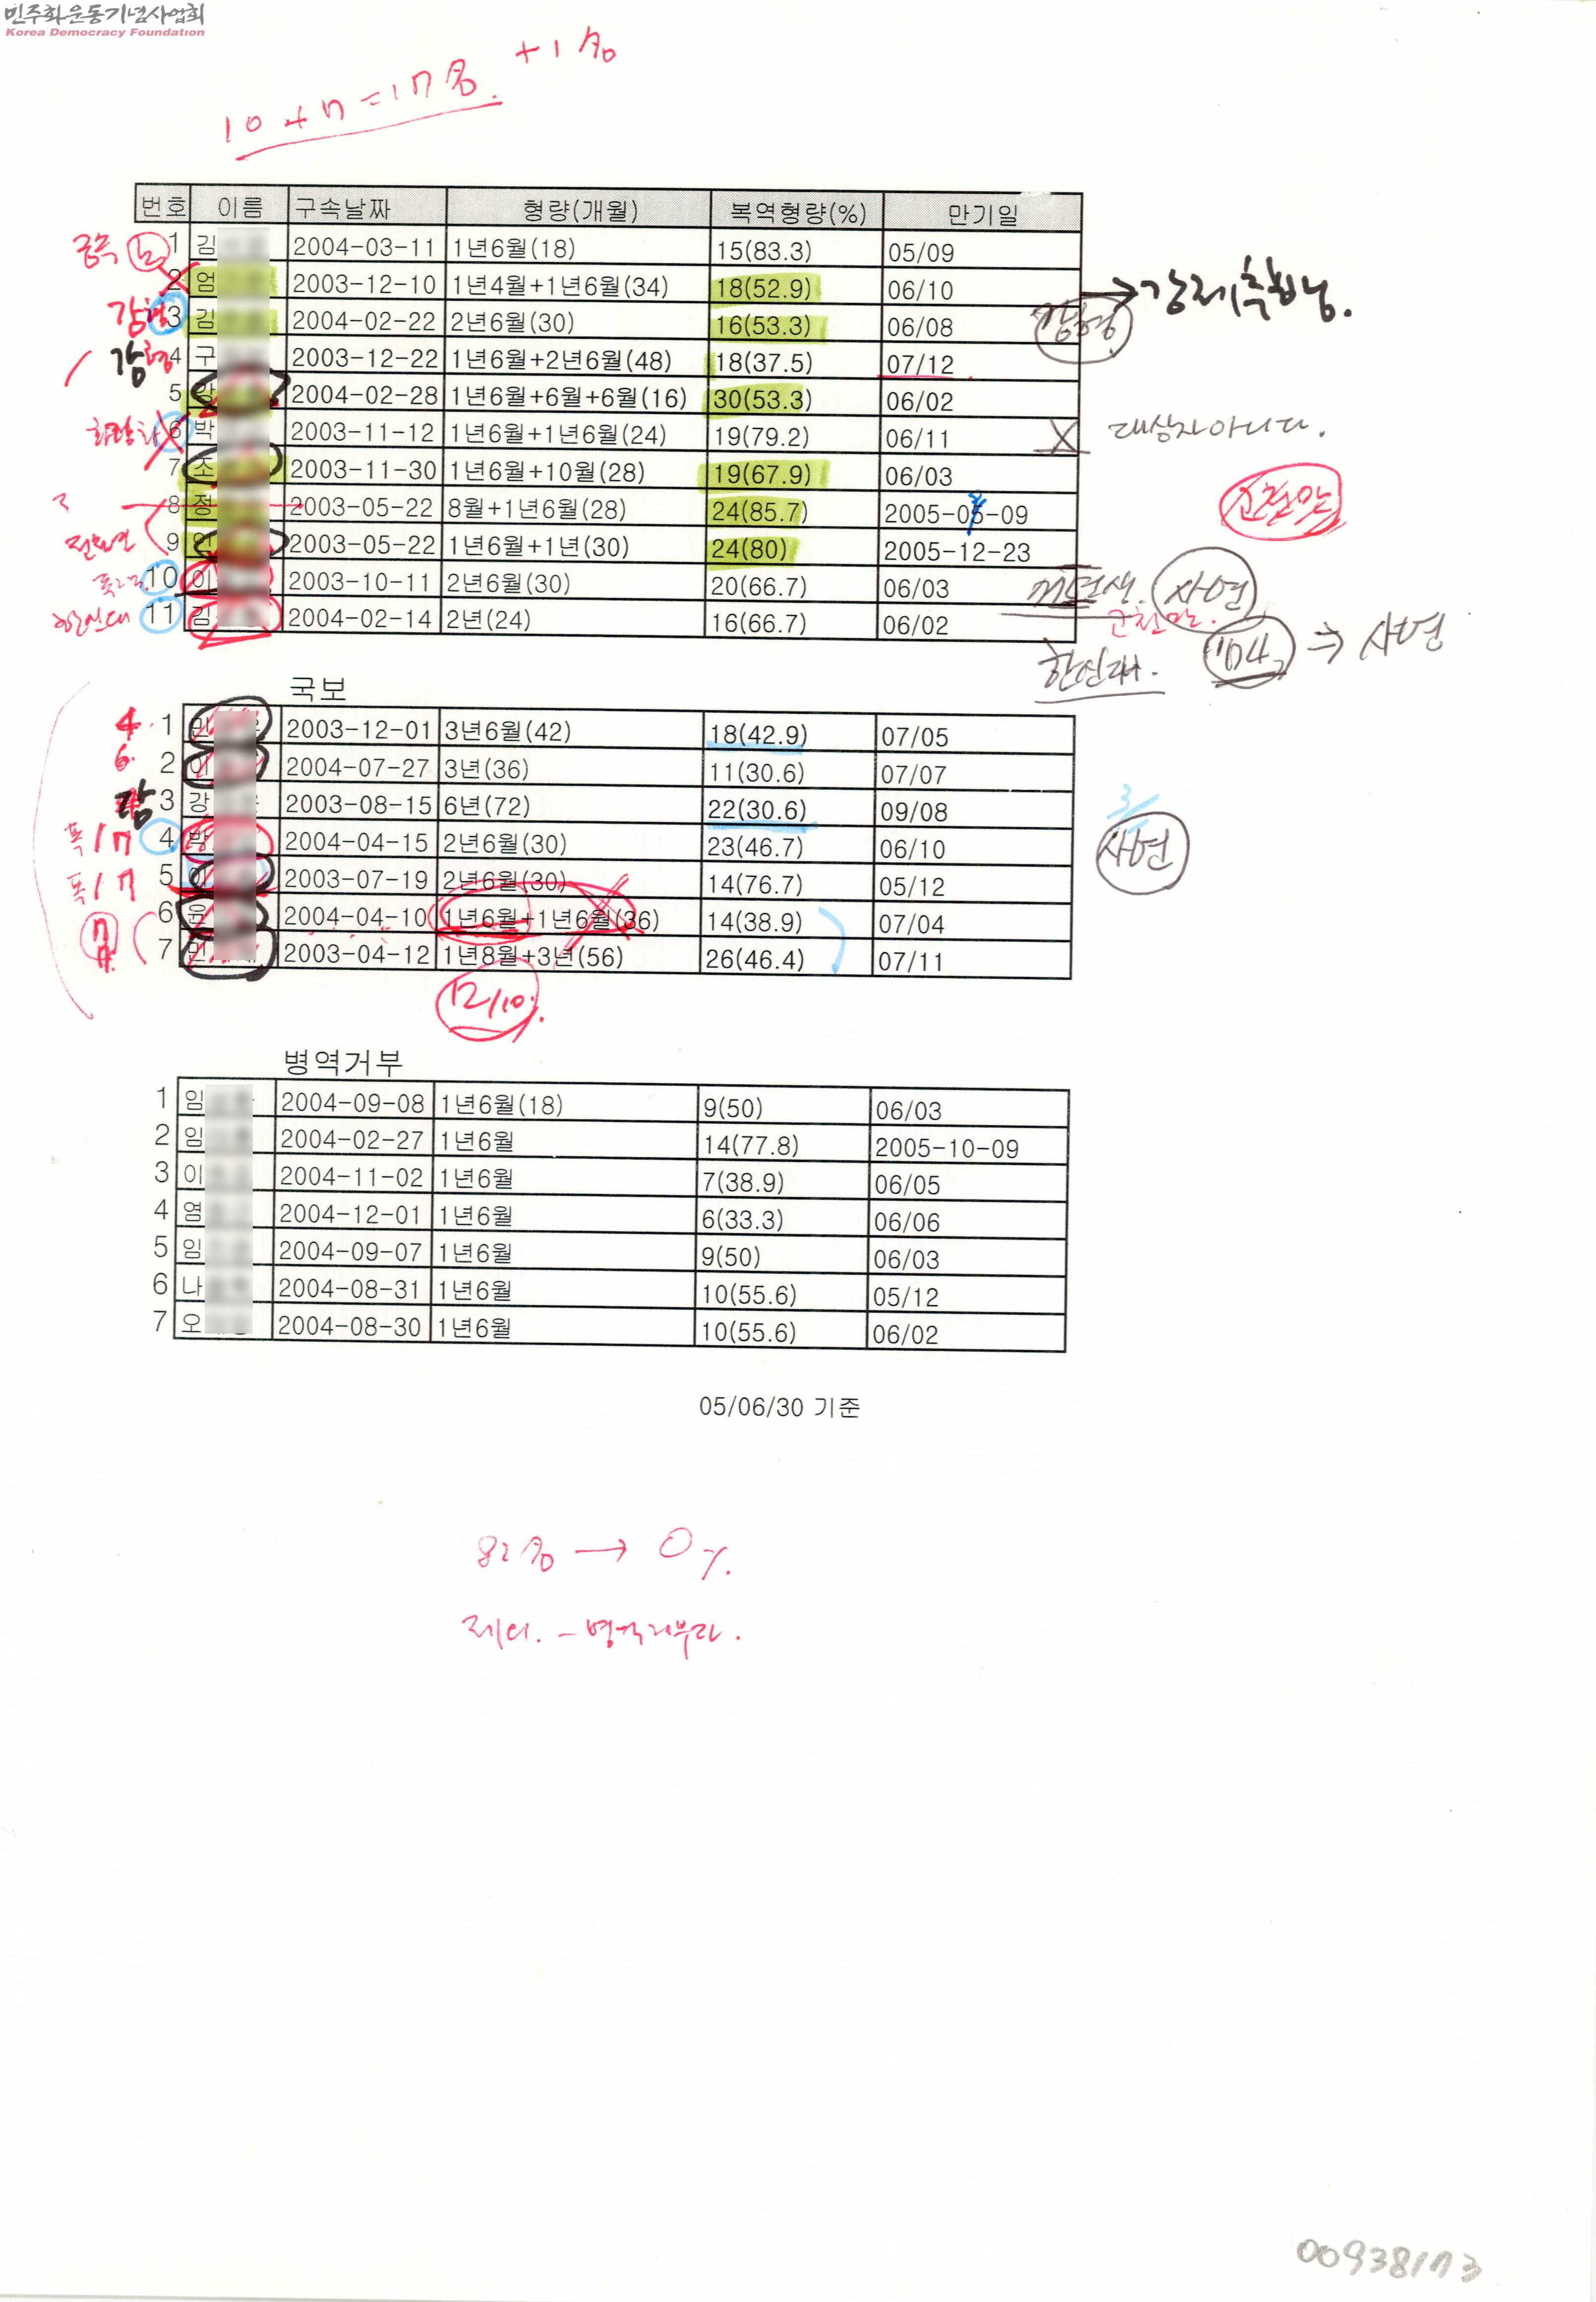 민주화운동기념사업회
Korea Democracy Foundation
10+7=17名. +1名
번호 이름 구속날짜 형량(개월) 복역형량(%) 만기일
1 김 2004-03-11 1년6월(18) 15(83.3) 05/09
2 엄 2003-12-10 1년4월+1년6월(34) 18(52.9) 06/10
감형 3 김 2004-02-22 2년6월(30) 16(53.3) 06/08 감형
감형 4 구 2003-12-22 1년6월+2년6월(48) 18(37.5) 07/12
5 2004-02-28 1년6월+6월+6월(16) 30(53.3) 06/02
6 박 2003-11-12 1년6월+1년6월(24) 19(79.2) 06/11 X 대상자아니다.
7 조 2003-11-30 1년6월+10월(28) 19(67.9) 06/03
8 정 2003-05-22 8월+1년6월(28) 24(85.7) 2005-05-09
9 2003-05-22 1년6월+1년(30) 24(80) 2005-12-23
10 이 2003-10-11 2년6월(30) 20(66.7) 06/03 사면
11 김 2004-02-14 2년(24) 16(66.7) 06/02
'04 ⇒ 사면
국보
4. 1 민 2003-12-01 3년6월(42) 18(42.9) 07/05
6. 2 이 2004-07-27 3년(36) 11(30.6) 07/07
감 3 강 2003-08-15 6년(72) 22(30.6) 09/08
폭/7 4 박 2004-04-15 2년6월(30) 23(46.7) 06/10 사면
폭/7 5 이 2003-07-19 2년6월(30) 14(76.7) 05/12
6 윤 2004-04-10 1년6월+1년6월(36) 14(38.9) 07/04
7 민 2003-04-12 1년8월+3년(56) 26(46.4) 07/11
12/10.
병역거부
1 임 2004-09-08 1년6월(18) 9(50) 06/03
2 임 2004-02-27 1년6월 14(77.8) 2005-10-09
3 이 2004-11-02 1년6월 7(38.9) 06/05
4 염 2004-12-01 1년6월 6(33.3) 06/06
5 임 2004-09-07 1년6월 9(50) 06/03
6 나 2004-08-31 1년6월 10(55.6) 05/12
7 오 2004-08-30 1년6월 10(55.6) 06/02
05/06/30 기준
82名 → 0%.
병역거부자.
00938173